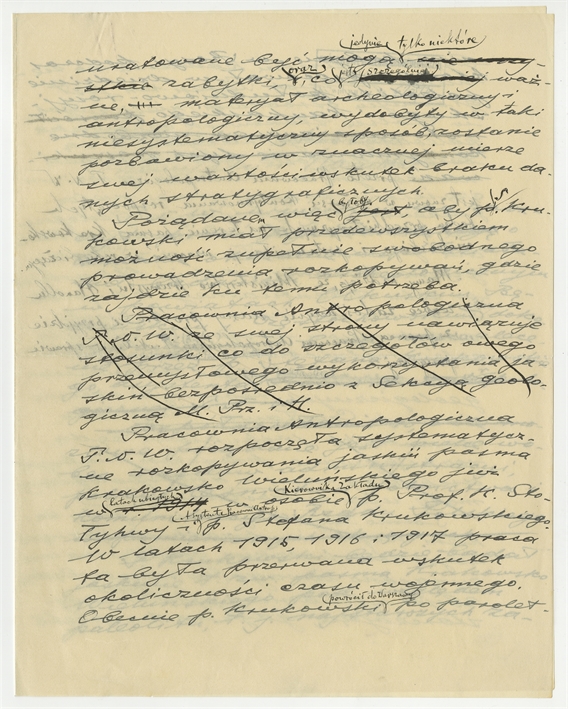 jedynie tylko niektóre
uratowane być mogą
zabytki, oraz co jest szczególnie waż-
ne, materjał archeologiczny i
antropologiczny, wydobyty w taki
niesystematyczny sposób, zostanie
pozbawiony w znacznej mierze
swej wartości wskutek braku da-
nych stratygraficznych.
Pożądanem więc byłoby aby p. S. Kru-
kowski miał przedewszystkiem
możność zupełnie swobodnego
prowadzenia rozkopywań, gdzie
zajdzie ku temu potrzeba.
Pracownia Antropologiczna
T. N. W. ze swej strony nawiązuje
stosunki co do szczegółów owego
przemysłowego wykorzystania ja-
skiń bezpośrednio z Sekcją Geolo-
giczną M. Prz. i H.
Pracownia Antropologiczna
T. N. W. rozpoczęła systematycz-
ne rozkopywania jaskiń pasma
Krakowsko Wieluńskiego już
w latach ubiegłych w osobie Kierownika Zakładu p. Prof. K. Sto-
łyhwy i p. Stefana Krukowskiego.
W latach 1915, 1916 i 1917 praca
ta była przerwana wskutek
okoliczności czasu wojennego.
Obecnie p. Krukowski powrócił do po parolet-